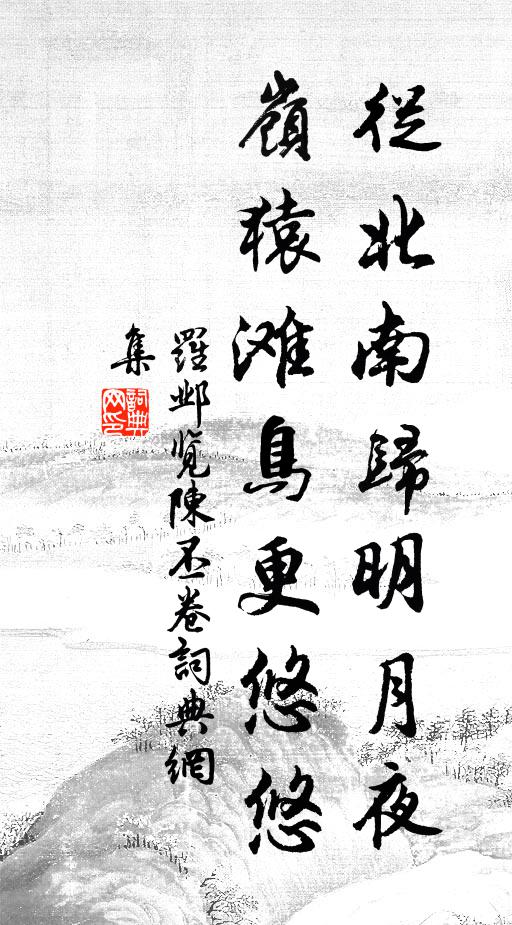 從北南歸明月夜
嶺猿滩鳥更悠悠
羅鄴览陳丕卷詞典網
集
詞典網印